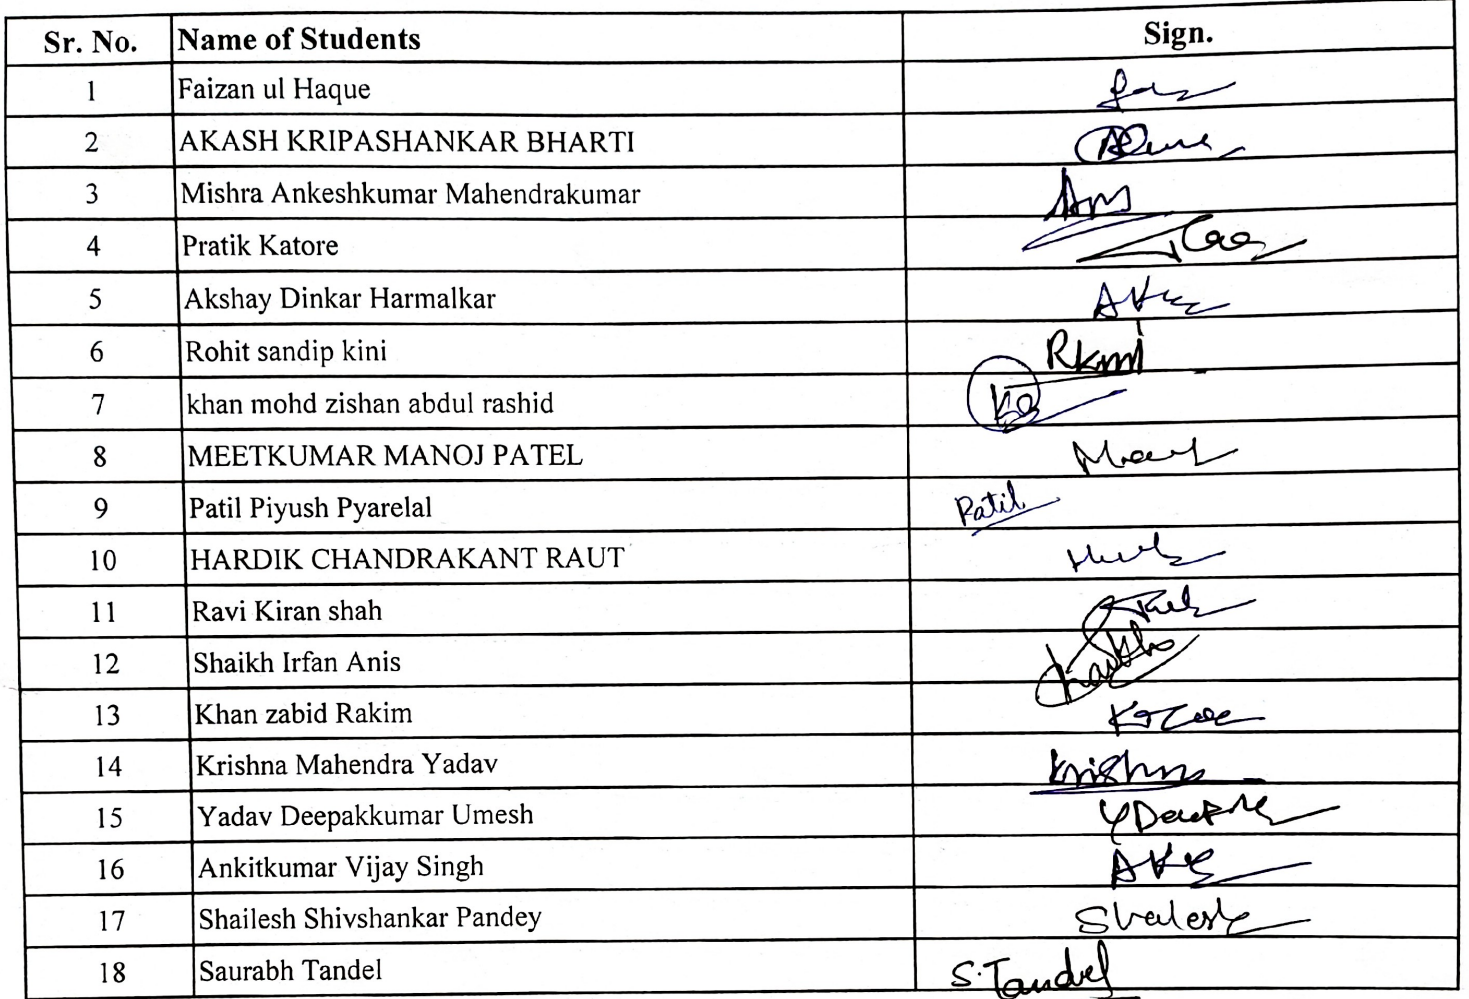 Sr. No. Name of Students Sign.
1 Faizan ul Haque
2 AKASH KRIPASHANKAR BHARTI
3 Mishra Ankeshkumar Mahendrakumar
4 Pratik Katore
5 Akshay Dinkar Harmalkar
6 Rohit sandip kini
7 khan mohd zishan abdul rashid
8 MEETKUMAR MANOJ PATEL
9 Patil Piyush Pyarelal Patil
10 HARDIK CHANDRAKANT RAUT
11 Ravi Kiran shah
12 Shaikh Irfan Anis
13 Khan zabid Rakim
14 Krishna Mahendra Yadav Krishna
15 Yadav Deepakkumar Umesh
16 Ankitkumar Vijay Singh
17 Shailesh Shivshankar Pandey
18 Saurabh Tandel S.Tandel